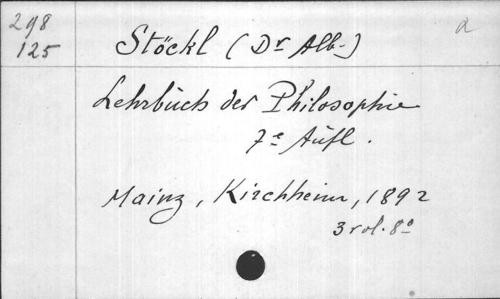 298
125
Stöckl (Dr Alb.)
a
Lehrbuch der Philosophie
7e Aufl.
Mainz, Kirchheim, 1892
3 vol. 8o